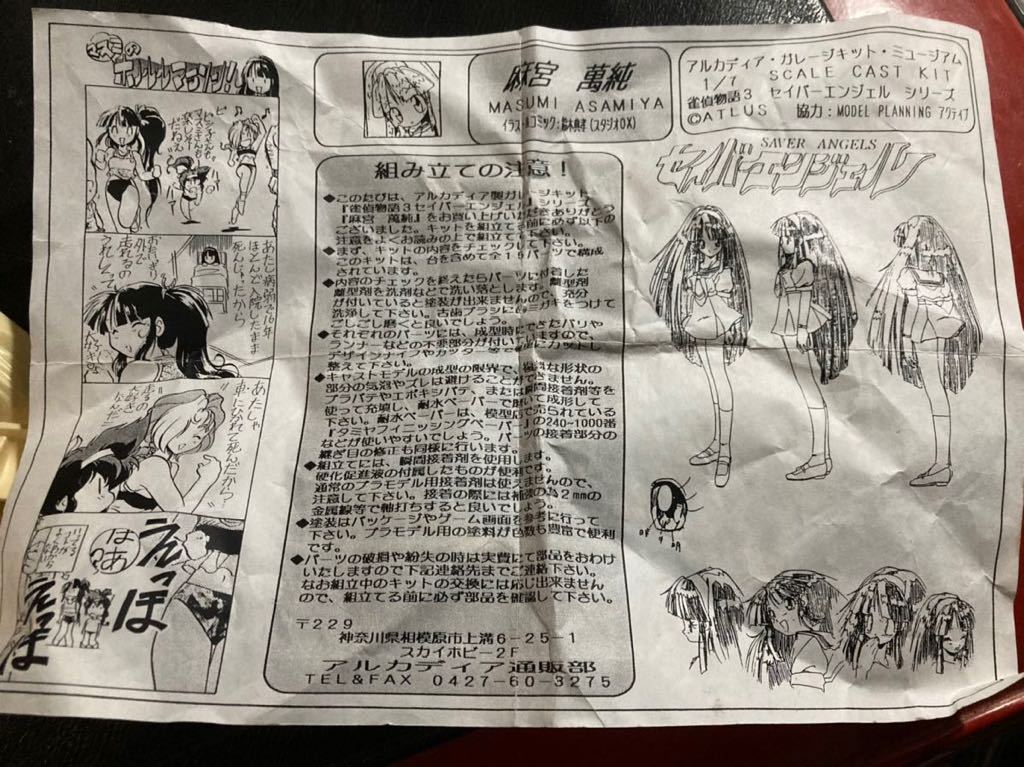 麻宮 萬純
MASUMI ASAMIYA
アルカディア・ガレージキット・ミュージアム
1/7 SCALE CAST KIT
雀偵物語3 セイバーエンジェル シリーズ
©ATLUS 協力:MODEL PLANNING アクティブ
SAVER ANGELS
セイバーエンジェル
組み立ての注意!
◆このたびは、アルカディア製ガレージキット
『雀偵物語3セイバーエンジェル』シリーズ
『麻宮 萬純』をお買い上げいただきありがとう
ございました。キットを組立てる前に必ず以下の
注意をよくお読みの上で組立て下さい。
◆まず、キットの内容をチェックして下さい。
このキットは、台を含めて全15パーツで構成
されています。
◆内容のチェックを終えたらパーツに付着した
離型剤を洗剤などで洗い落とします。離型剤
が付いていると塗装が出来ませんので、充分
洗浄して下さい。古歯ブラシにみがきをつけて
ごしごし磨くと良いでしょう。
◆それぞれのパーツには、成型時にできたバリや
ランナーなどの不要部分が付いていますので、
デザインナイフやカッター等で
整えて下さい。
◆キャストモデルの成型の限界で、な形状の
部分の気泡やズレは避けることができません。
プラパテやエポキシパテ、または瞬間接着剤等を
使って充填し、耐水ペーパーで磨いて成形して
下さい。耐水ペーパーは、模型店で売られている
『タミヤフィニッシングペーパー』の240~1000番
などが使いやすいでしょう。パーツの接着部分の
継ぎ目の修正も同様に行います。
◆組立てには、瞬間接着剤を使用します。
硬化促進液の付属したものが便利です。
通常のプラモデル用接着剤は使えませんので、
注意して下さい。接着の際には補強の為2mmの
金属線等で軸打ちすると良いでしょう。
◆塗装はパッケージやゲーム画面を参考に行って
下さい。プラモデル用の塗料が色数も豊富で便利
です。
◆パーツの破損や紛失の時は実費にて部品をおわけ
いたしますので下記連絡先までご連絡下さい。
なお組立中のキットの交換には応じ出来ません
ので、組立てる前に必ず部品を確認して下さい。
〒229
神奈川県相模原市上溝6-25-1
スカイホビー2F
アルカディア通販部
TEL&FAX 0427-60-3275
あたし病弱で26年
ほとんど入院したまま
死んじゃったから
あたしゃ
車にひかれて死んだから
はあ?
えっほ
えっほ